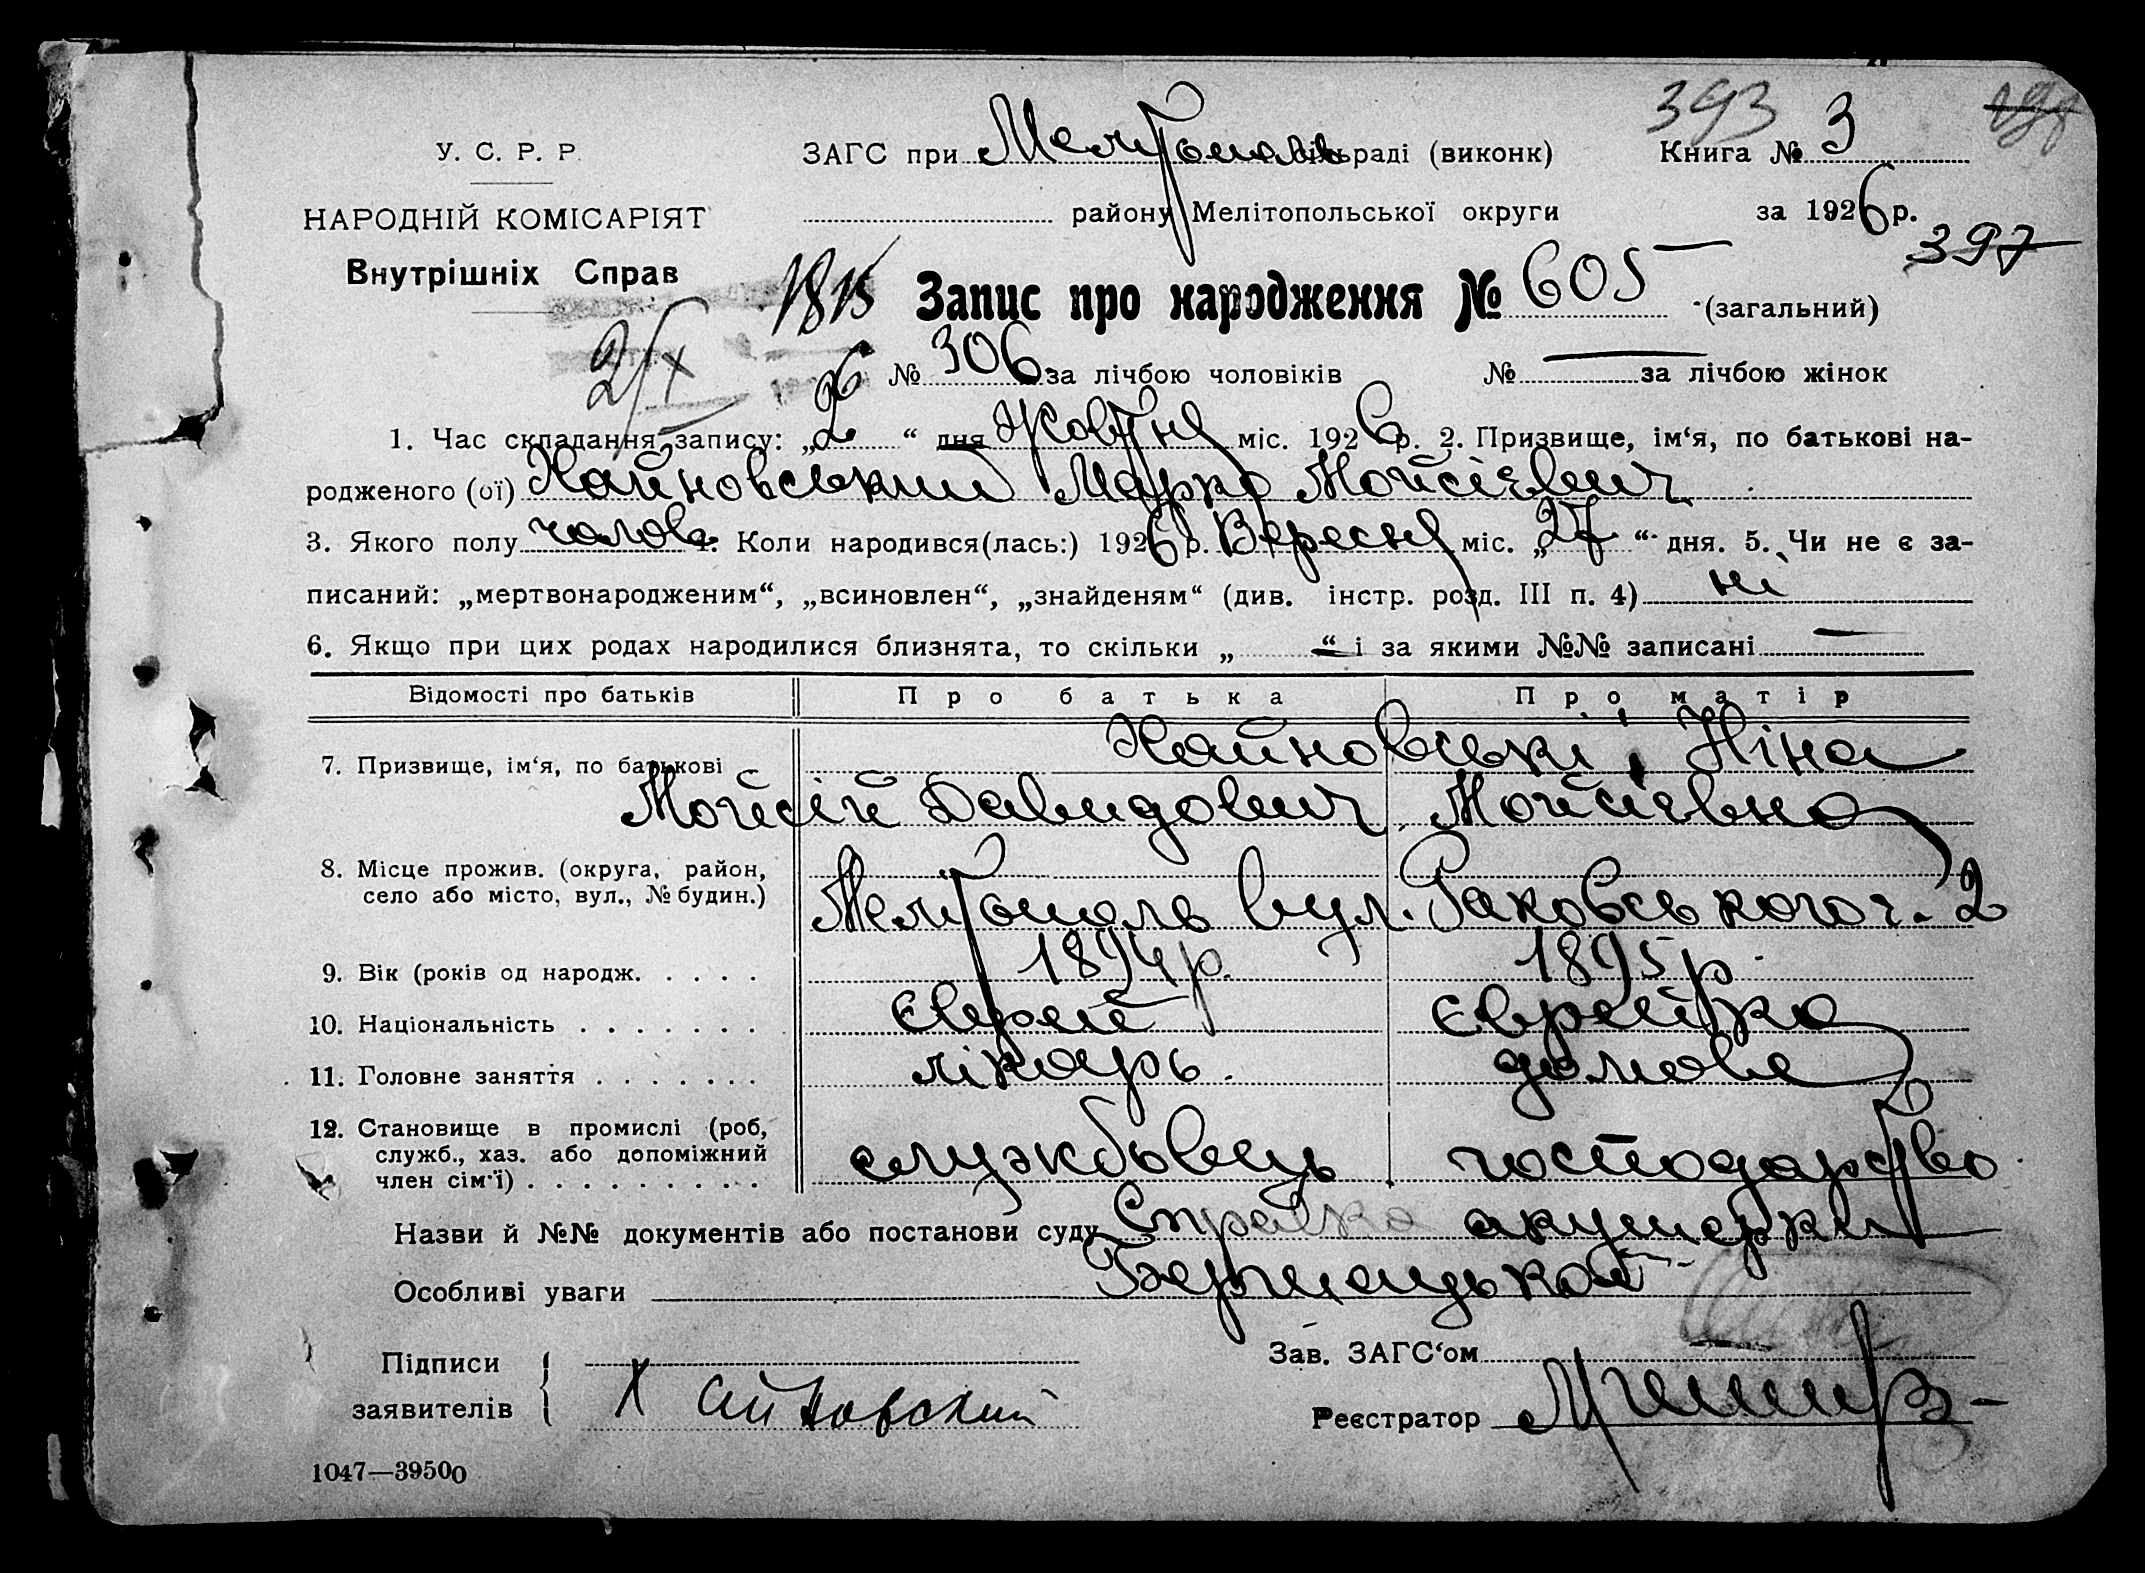 393
У. С. Р. Р.
ЗАГС при Мелітополь раді (виконк)
Книга № 3
НАРОДНІЙ КОМІСАРІЯТ
району Мелітопольської округи
за 1926 р.
397
Внутрішніх Справ
Запис про народження № 605 (загальний)
№ 306 за лічбою чоловіків № — за лічбою жінок
1. Час складання запису: „2“ дня Жовтня міс. 1926 р. 2. Призвище, ім‘я, по батькові на-
родженого (ої) Хайновський Марко Мойсієвич
3. Якого полу чолов 4. Коли народився(лась:) 1926 р. Вересня міс. „27“ дня. 5. Чи не є за-
писаний: „мертвонародженим“, „всиновлен“, „знайденям“ (див. інстр. розд. III п. 4) ні
6. Якщо при цих родах народилися близнята, то скільки „ — “ і за якими №№ записані —
Відомості про батьків Про батька Про матір
7. Призвище, ім‘я, по батькові Хайновські, Ніна
Мойсій Давидович Мойсієвна
8. Місце прожив. (округа, район,
село або місто, вул., № будин.) Мелітополь вул. Раковського ч. 2
9. Вік (років од народж. . . . . 1894 р. 1895 р.
10. Національність . . . . . . . Єврей Єврейка
11. Головне заняття . . . . . . . лікарь. домове
12. Становище в промислі (роб,
служб., хаз. або допоміжний службовець господарство
член сім‘ї) . . . . . . . . .
Назви й №№ документів або постанови суду Справка акушерки
Особливі уваги
Підписи
заявителів Хайновский
Зав. ЗАГС‘ом
Реєстратор
1047—39500